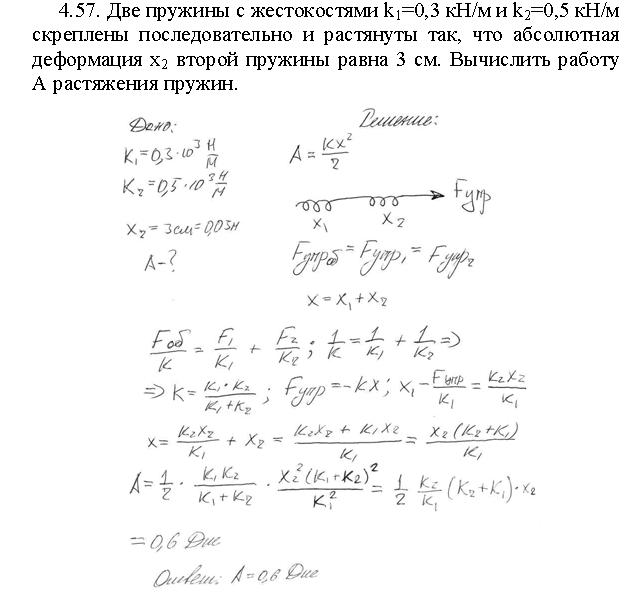 4.57. Две пружины с жестокостями k₁=0,3 кН/м и k₂=0,5 кН/м
скреплены последовательно и растянуты так, что абсолютная
деформация x₂ второй пружины равна 3 см. Вычислить работу
А растяжения пружин.
Дано: Решение:
K₁=0,3·10³ Н/М A = Kx²/2
K₂=0,5·10³ Н/М Fупр
x₁ x₂
X₂ = 3см=0,03н
A-? Fупроб = Fупр₁ = Fупр₂
x = x₁ + x₂
Fоб/K = F₁/K₁ + F₂/K₂ ; 1/K = 1/K₁ + 1/K₂ =>
=> K = K₁·K₂/K₁+K₂ ; Fупр = -kx ; x₁ - Fупр/K₁ = K₂x₂/K₁
x = K₂x₂/K₁ + x₂ = K₂x₂ + K₁x₂/K₁ = x₂(K₂+K₁)/K₁
A = 1/2 · K₁K₂/K₁+K₂ · x₂²(K₁+K₂)²/K₁² = 1/2 K₂/K₁ (K₂+K₁)·x₂
= 0,6 Дж
Ответ: A = 0,6 Дж